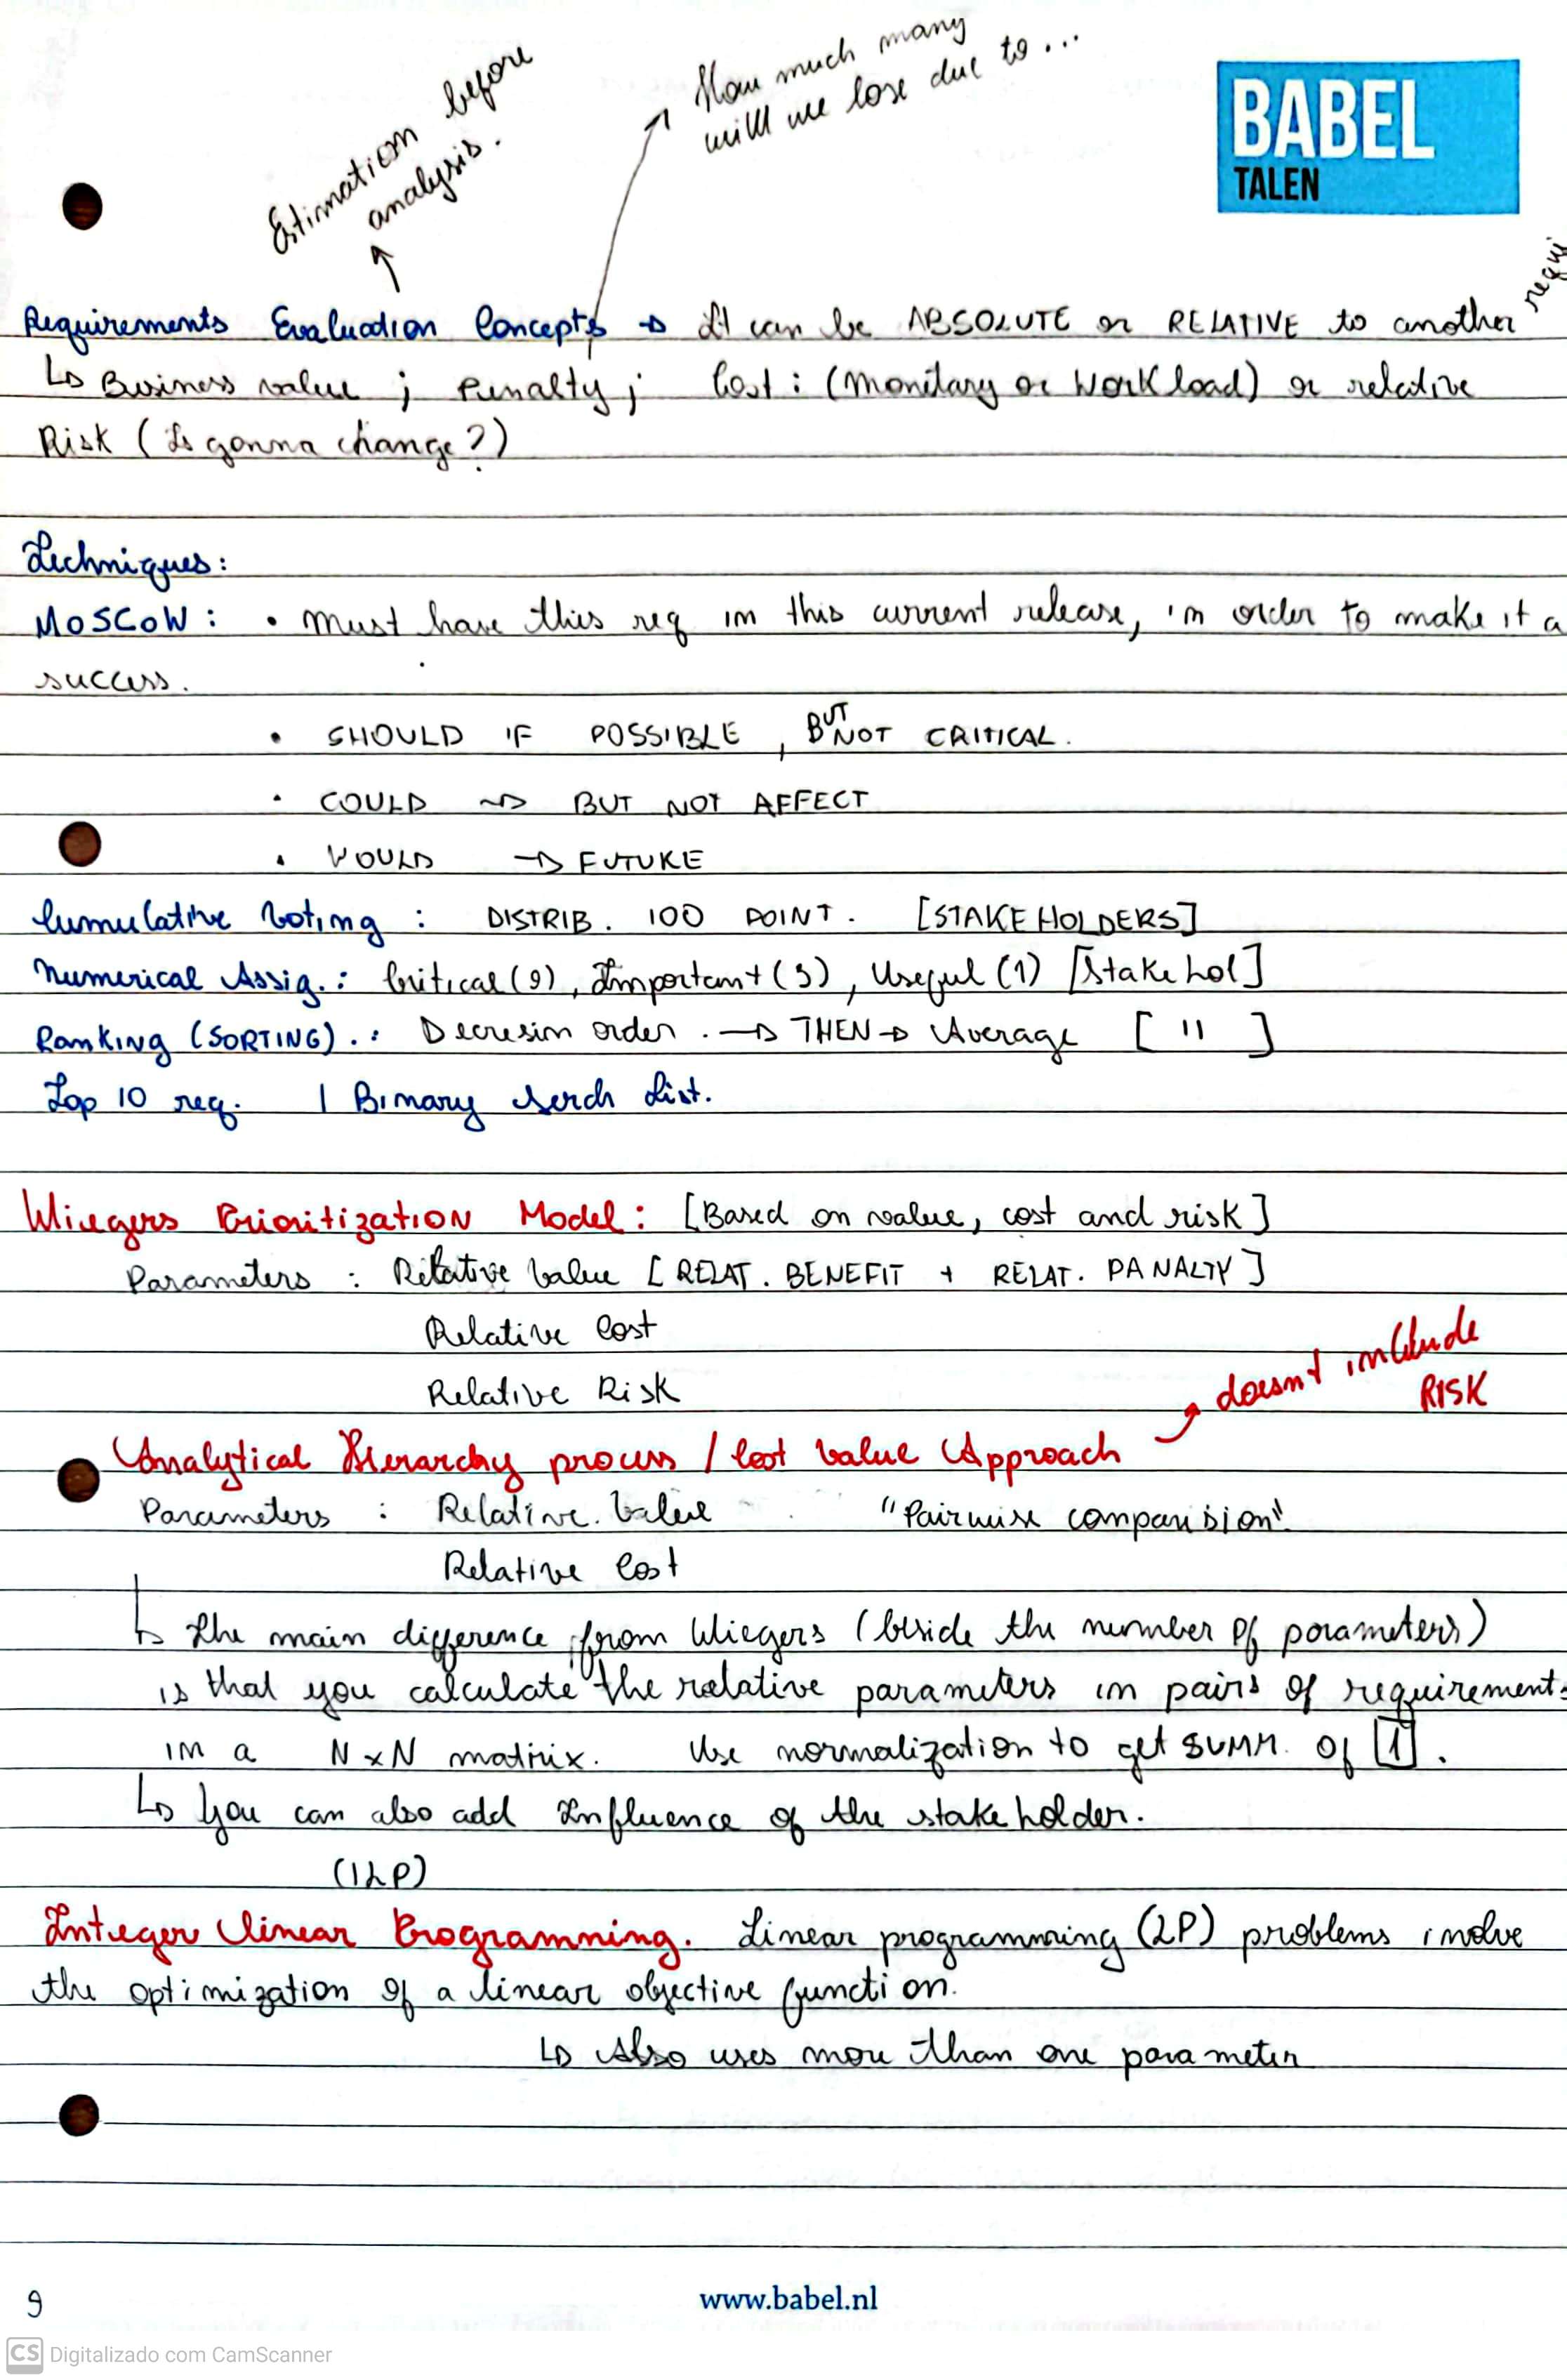 Estimation before
analysis.
How much many
will we lose due to ...
BABEL
TALEN
requi
Requirements Evaluation Concepts → It can be ABSOLUTE or RELATIVE to another
↳ Business value ; Penalty ; Cost : (Monitary or Workload) or relative
Risk (Is gonna change?)
Techniques:
MoSCoW : • Must have this req im this current release, in order to make it a
success.
• SHOULD IF POSSIBLE , BUT NOT CRITICAL.
• COULD ~> BUT NOT AFFECT
• WOULD → FUTURE
Cumulative Voting : DISTRIB. 100 POINT. [STAKEHOLDERS]
Numerical Assig. : Critical (9), Important (3), Useful (1) [Stakehol]
Ranking (SORTING) . : Decresim order . → THEN → Average [ " ]
Top 10 req. | Binary Serch List.
Wiegers Prioritization Model : [Based on value, cost and risk]
Parameters : Relative Value [RELAT. BENEFIT + RELAT. PANALTY]
Relative Cost
Relative Risk
doesnt imclude
RISK
Analytical Hierarchy process / Cost Value Approach
Parameters : Relative Value "Pairwise comparision"
Relative Cost
↳ The main difference from Wiegers (beside the number of parameters)
is that you calculate the relative parameters in pairs of requirements
im a N x N matrix. Use normalization to get SUMM. Of 1 .
↳ You can also add Influence of the stakeholder.
(ILP)
Integer Linear Programming. Linear programming (LP) problems involve
the optimization of a linear objective function.
↳ Also uses more than one parameter
9
www.babel.nl
CS Digitalizado com CamScanner